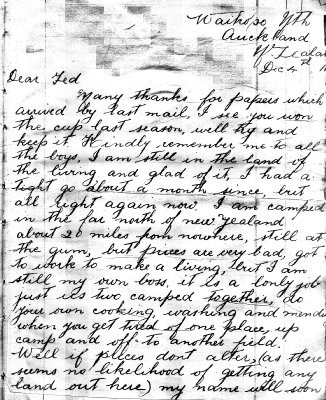 Waihopo Nth
Auckland
N Zealand
Dec 4th
Dear Ted
Many thanks for papers which
arrived by last mail, I see you won
the cup last season, well try and
keep it. Kindly remember me to all
the boys, I am still in the land of
the living and glad of it, I had a
tight go about a month since, but
all right again now I am camped
in the far north of new Zealand
about 20 miles from nowhere, still at
the gum, but prices are very bad, got
to work to make a living, but I am
still my own boss, it is a lonly job
just us two camped together, do
your own cooking, washing and mendi
when you get tired of one place, up
camp and off to another field.
Well if prices dont alter, (as there
seems no likelihood of getting any
land out here) my name will soon